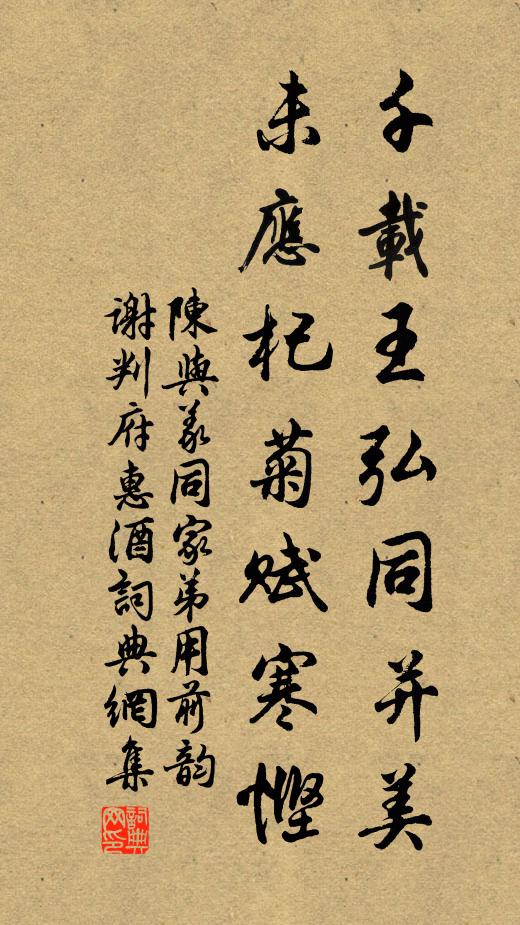 千載王弘同并美
未應杞菊賦寒慳
陳與義同家弟用前韵
謝判府惠酒詞典網集
詞典網印